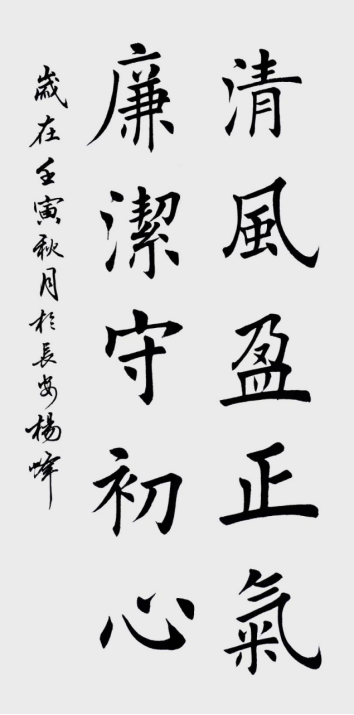 清風盈正氣
廉潔守初心
歲在壬寅秋月於長安楊峰